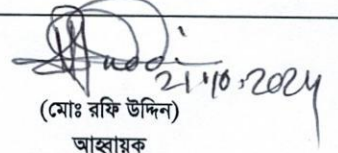 21.10.2024
(মোঃ রফি উদ্দিন)
আহ্বায়ক